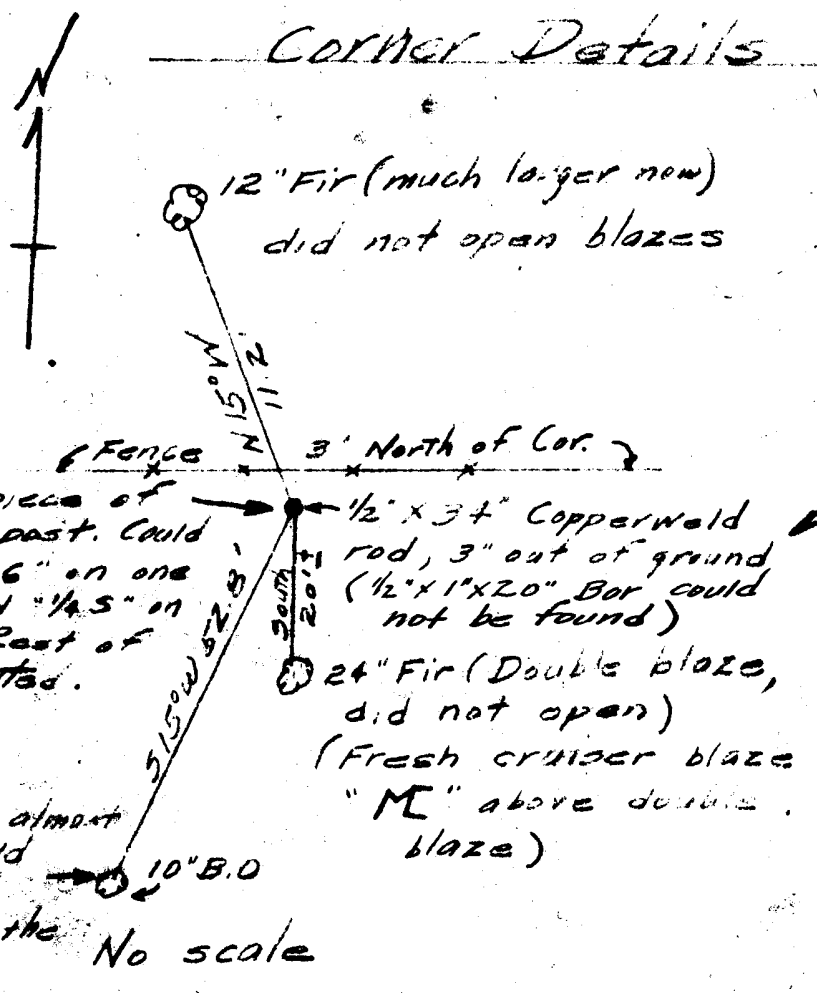 Corner Details
N
12" Fir (much larger now)
did not open blazes
N 15° W
11.2'
Fence 3' North of Cor.
piece of
post. Could
6" on one
"1/4 S" on
Rest of
1/2" X 34" Copperweld
rod, 3" out of ground
(1/2" X 1" X 20" Bar could
not be found)
South
20'±
S 15° W 52.8'
24" Fir (Double blaze,
did not open)
(Fresh cruiser blaze
"MC" above double
blaze)
almost
10" B.O
the
No scale